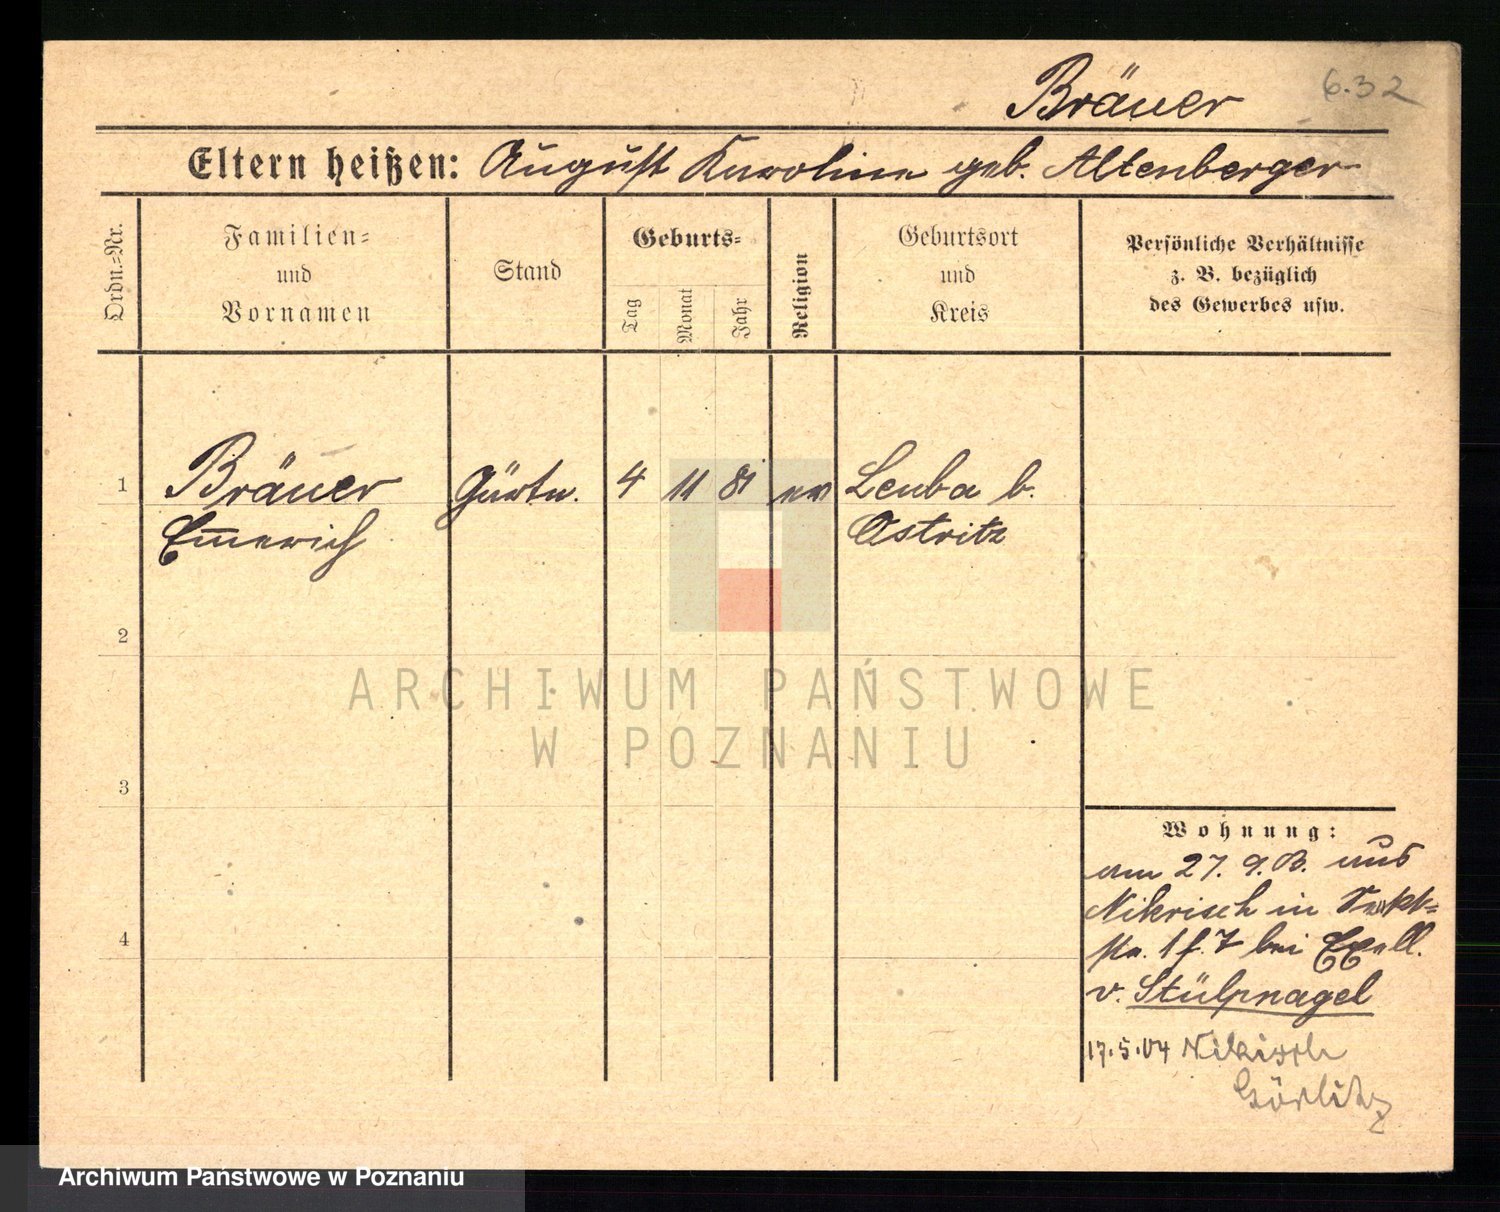 6.32
Bräuer
Eltern heißen: August Karoline geb. Altenberger
Ordn.=Nr.
Familien=
und
Vornamen
Stand
Geburts=
Tag
Monat
Jahr
Religion
Geburtsort
und
Kreis
Persönliche Verhältnisse
z. B. bezüglich
des Gewerbes usw.
1 Bräuer Gärtn. 4 11 81 ev Leuba b.
Emmerich Ostritz
2
3
4
Wohnung:
am 27. 9. aus
Nikrisch in
bei Exzell.
v. Stülpnagel
17.5.04 Nikrisch
Görlitz
ARCHIWUM PAŃSTWOWE
W POZNANIU
Archiwum Państwowe w Poznaniu